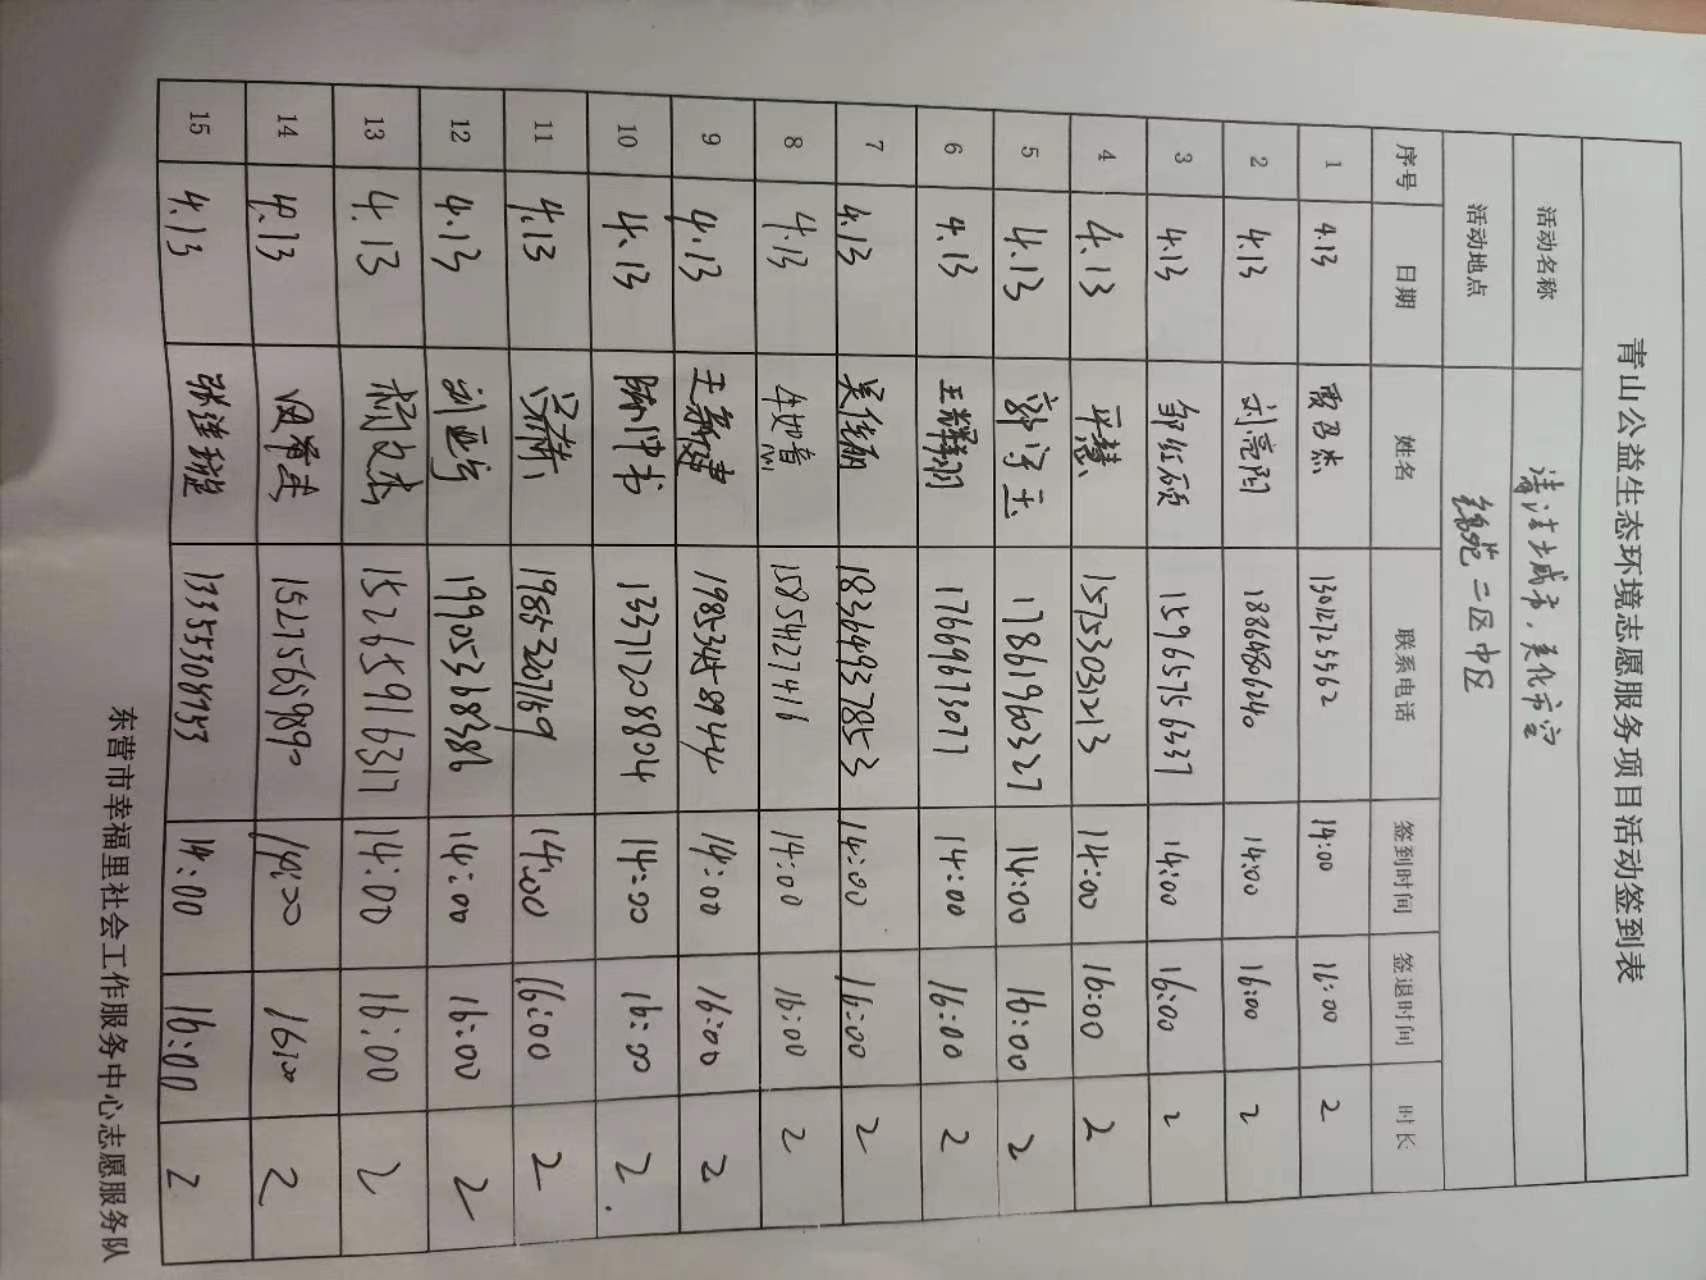 青山公益生态环境志愿服务项目活动签到表
活动名称 清洁城市,美化市容
活动地点 锦苑二区中区
序号 日期 姓名 联系电话 签到时间 签退时间 时长
1 4.13 贾召杰 13012725562 14:00 16:00 2
2 4.13 刘亮阳 18864806240 14:00 16:00 2
3 4.13 邹红硕 15965756437 14:00 16:00 2
4 4.13 平慧 15753031213 14:00 16:00 2
5 4.13 郭宇玉 17861960327 14:00 16:00 2
6 4.13 王耀翔 17669673077 14:00 16:00 2
7 4.13 吴佳丽 18364937853 14:00 16:00 2
8 4.13 牛如意 15854127416 14:00 16:00 2
9 4.13 王新健 19853458944 14:00 16:00 2
10 4.13 陈沛书 13371208804 14:00 16:00 2
11 4.13 19853207169 14:00 16:00 2
12 4.13 刘亚宁 19905368386 14:00 16:00 2
13 4.13 杨文杰 15265916317 14:00 16:00 2
14 4.13 15275659890 14:00 16:00 2
15 4.13 张洋旋 13355308953 14:00 16:00 2
东营市幸福里社会工作服务中心志愿服务队